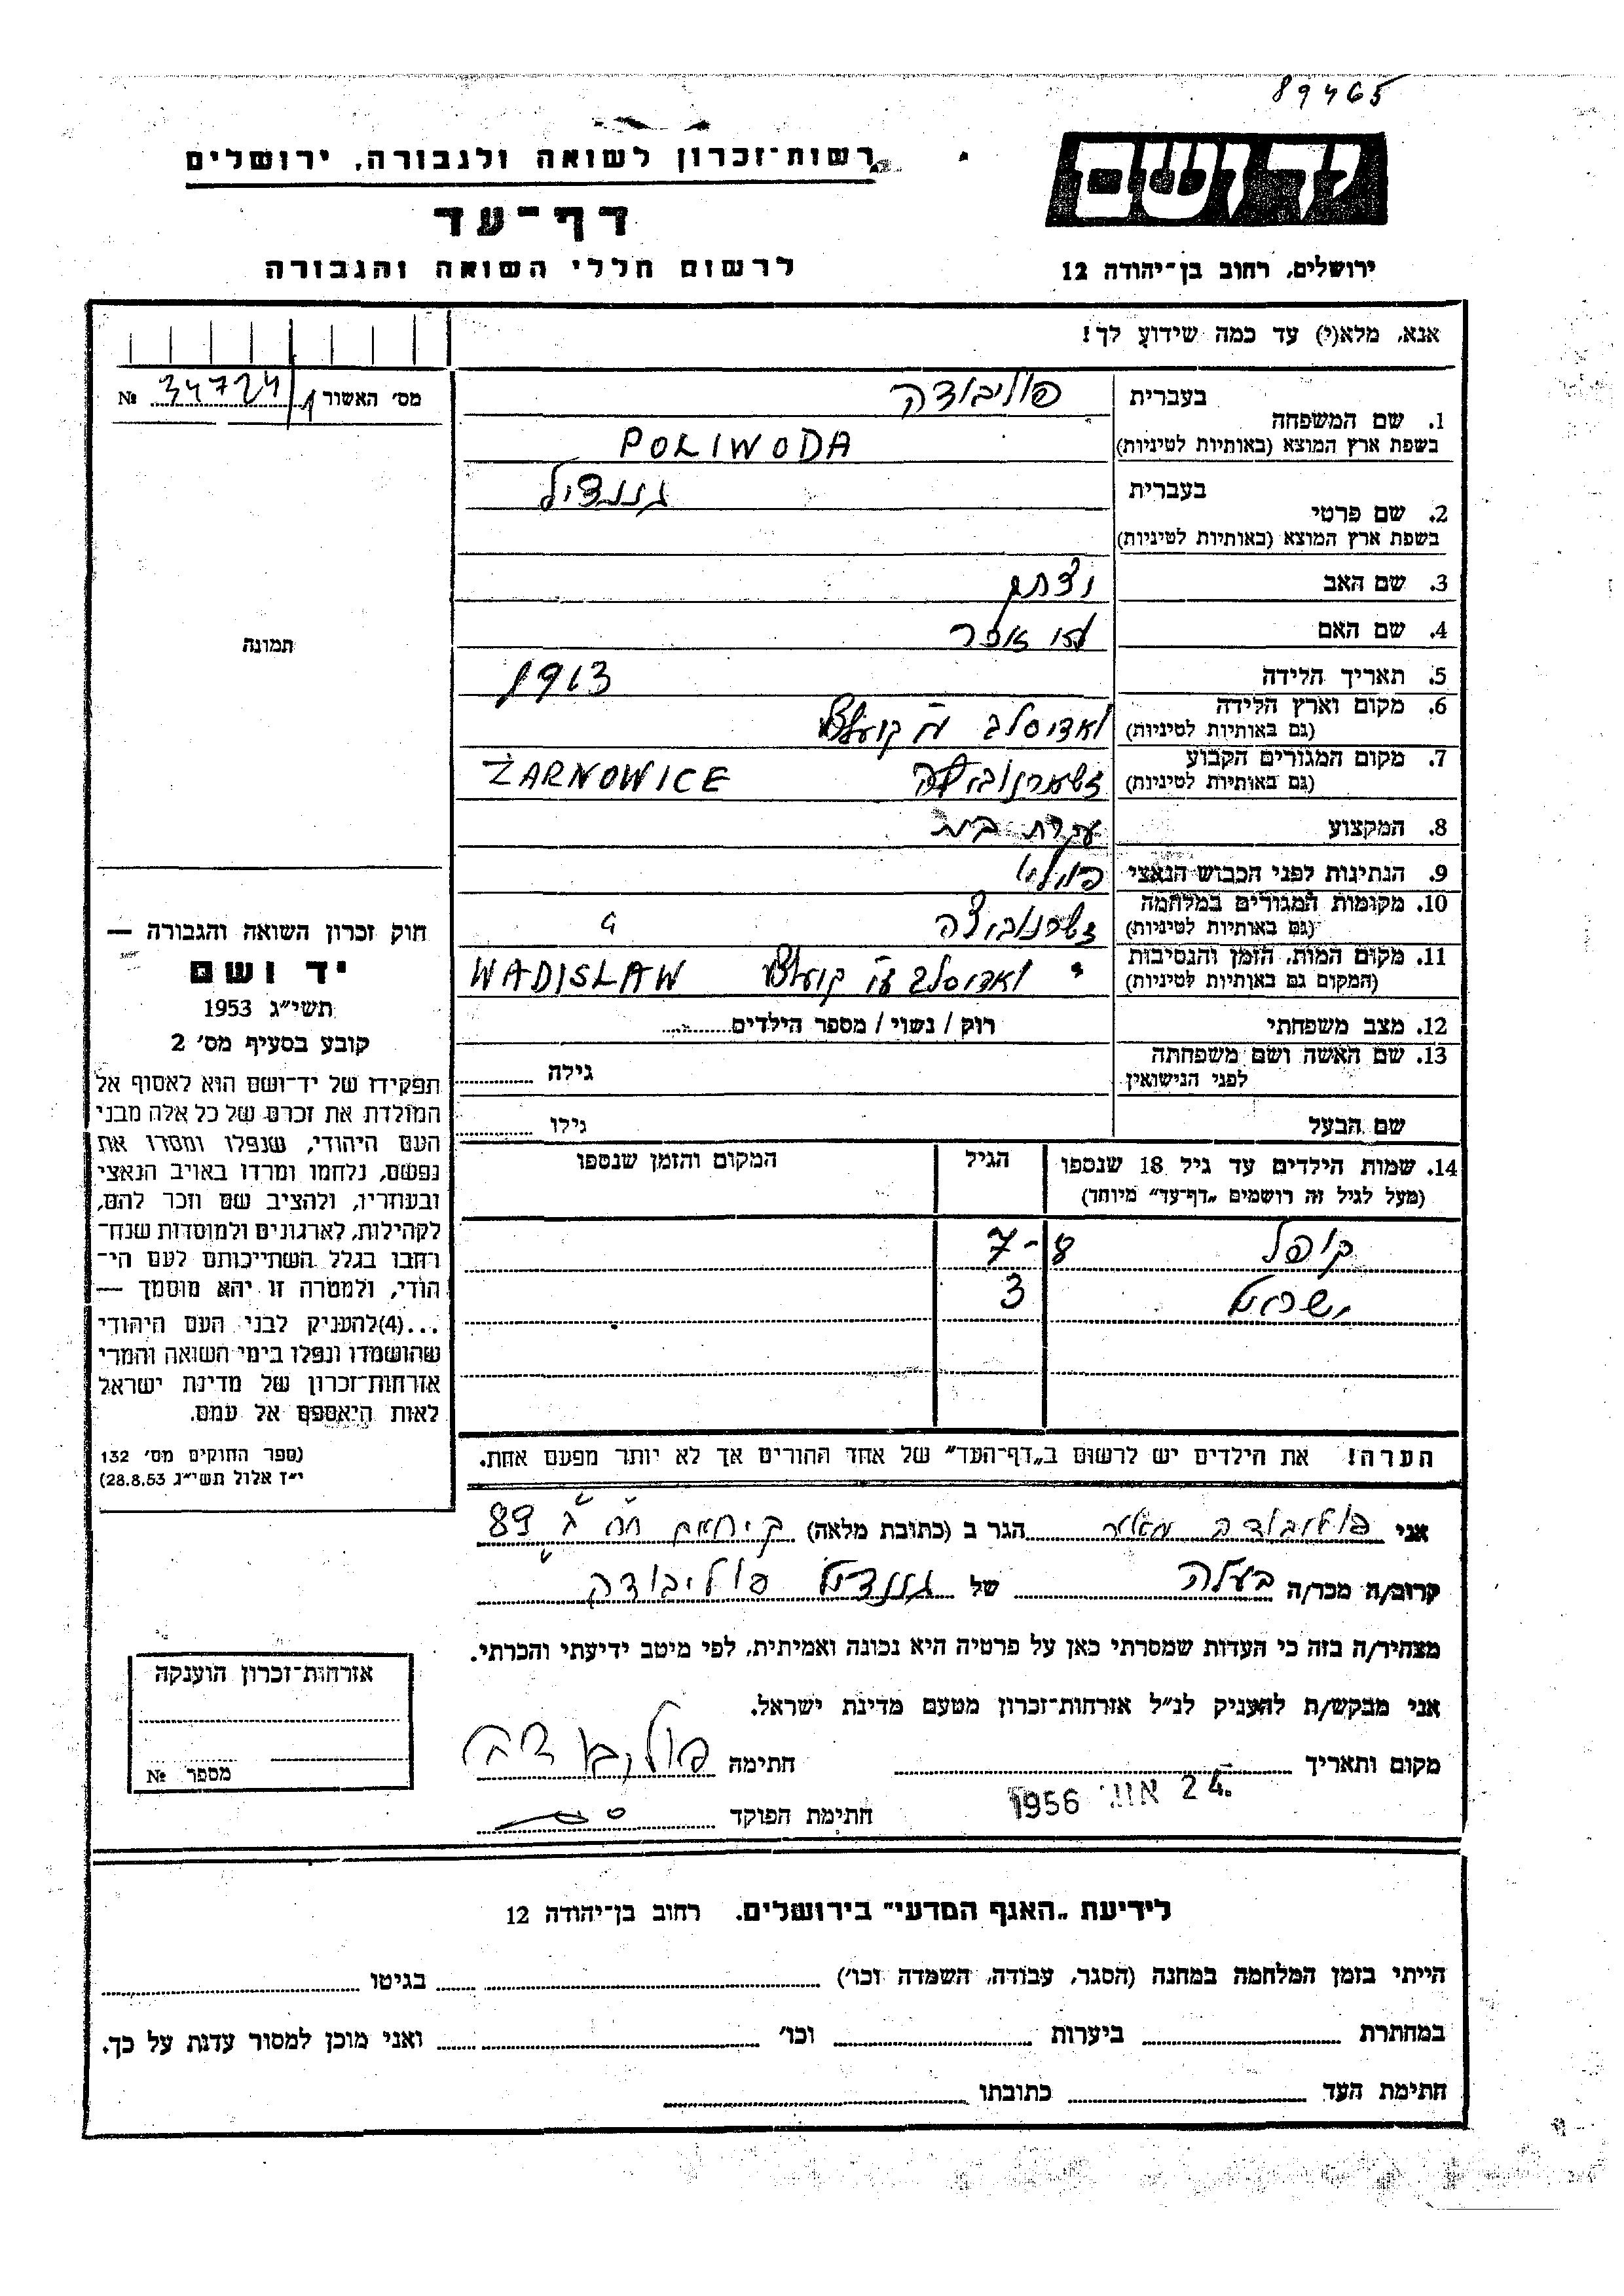 89465
רשות־זכרון לשואה ולגבורה, ירושלים
יד ושם
דף־עד
לרשום חללי השואה והגבורה
ירושלים, רחוב בן־יהודה 12
אנא, מלא(י) עד כמה שידוע לך!
מס׳ האשור 34724/1 №
תמונה
1. שם המשפחה בעברית פוליבודה
בשפת ארץ המוצא (באותיות לטיניות) POLIWODA
2. שם פרטי בעברית גננדיל
בשפת ארץ המוצא (באותיות לטיניות)
3. שם האב
4. שם האם
5. תאריך הלידה 1913
6. מקום וארץ הלידה ואדיסלב
(גם באותיות לטיניות)
7. מקום המגורים הקבוע ZARNOWICE
(גם באותיות לטיניות)
8. המקצוע עקרת בית
9. הנתינות לפני הכבוש הנאצי
10. מקומות המגורים במלחמה
(גם באותיות לטיניות)
11. מקום המות, הזמן והנסיבות ואדיסלב WADISLAW
(המקום גם באותיות לטיניות)
12. מצב משפחתי רווק / נשוי / מספר הילדים
13. שם האשה ושם משפחתה גילה
לפני הנישואין
שם הבעל גילו
14. שמות הילדים עד גיל 18 שנספו הגיל המקום והזמן שנספו
(מעל לגיל זה רושמים „דף־עד״ מיוחד)
קופל 7-8
ישראל 3
הערה! את הילדים יש לרשום ב„דף־העד״ של אחד ההורים אך לא יותר מפעם אחת.
חוק זכרון השואה והגבורה —
יד ושם
תשי״ג 1953
קובע בסעיף מס׳ 2
תפקידו של יד־ושם הוא לאסוף אל
המולדת את זכרם של כל אלה מבני
העם היהודי, שנפלו ומסרו את
נפשם, נלחמו ומרדו באויב הנאצי
ובעוזריו, ולהציב שם וזכר להם,
לקהילות, לארגונים ולמוסדות שנח־
רחבו בגלל השתייכותם לעם הי־
הודי, ולמטרה זו יהא מוסמך —
...(4) להעניק לבני העם היהודי
שהושמדו ונפלו בימי השואה והמרי
אזרחות־זכרון של מדינת ישראל
לאות היאספם אל עמם.
(ספר החוקים מס׳ 132
י״ז אלול תשי״ג 28.8.53)
אני פוליבודה מאיר הגר ב (כתובת מלאה) 89
קרוב/ה מכר/ה בעלה של גננדיל פוליבודה
מצהיר/ה בזה כי העדות שמסרתי כאן על פרטיה היא נכונה ואמיתית, לפי מיטב ידיעתי והכרתי.
אני מבקש/ת להעניק לנ״ל אזרחות־זכרון מטעם מדינת ישראל.
מקום ותאריך 24. אוג׳ 1956 חתימה
חתימת הפוקד
אזרחות־זכרון הוענקה
מספר №
לידיעת „האגף המדעי״ בירושלים. רחוב בן־יהודה 12
הייתי בזמן המלחמה במחנה (הסגר, עבודה, השמדה וכו׳) בגיטו
במחתרת ביערות וכו׳ ואני מוכן למסור עדות על כך.
חתימת העד כתובתו